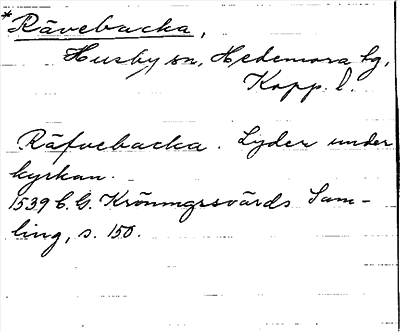 *Rävebacka,
Husby sn, Hedemora tg,
Kopp. l.
Räfvebacka. Lyder under
kyrkan.
1539 C. G. Kröningsvärds Sam-
ling, s. 150.